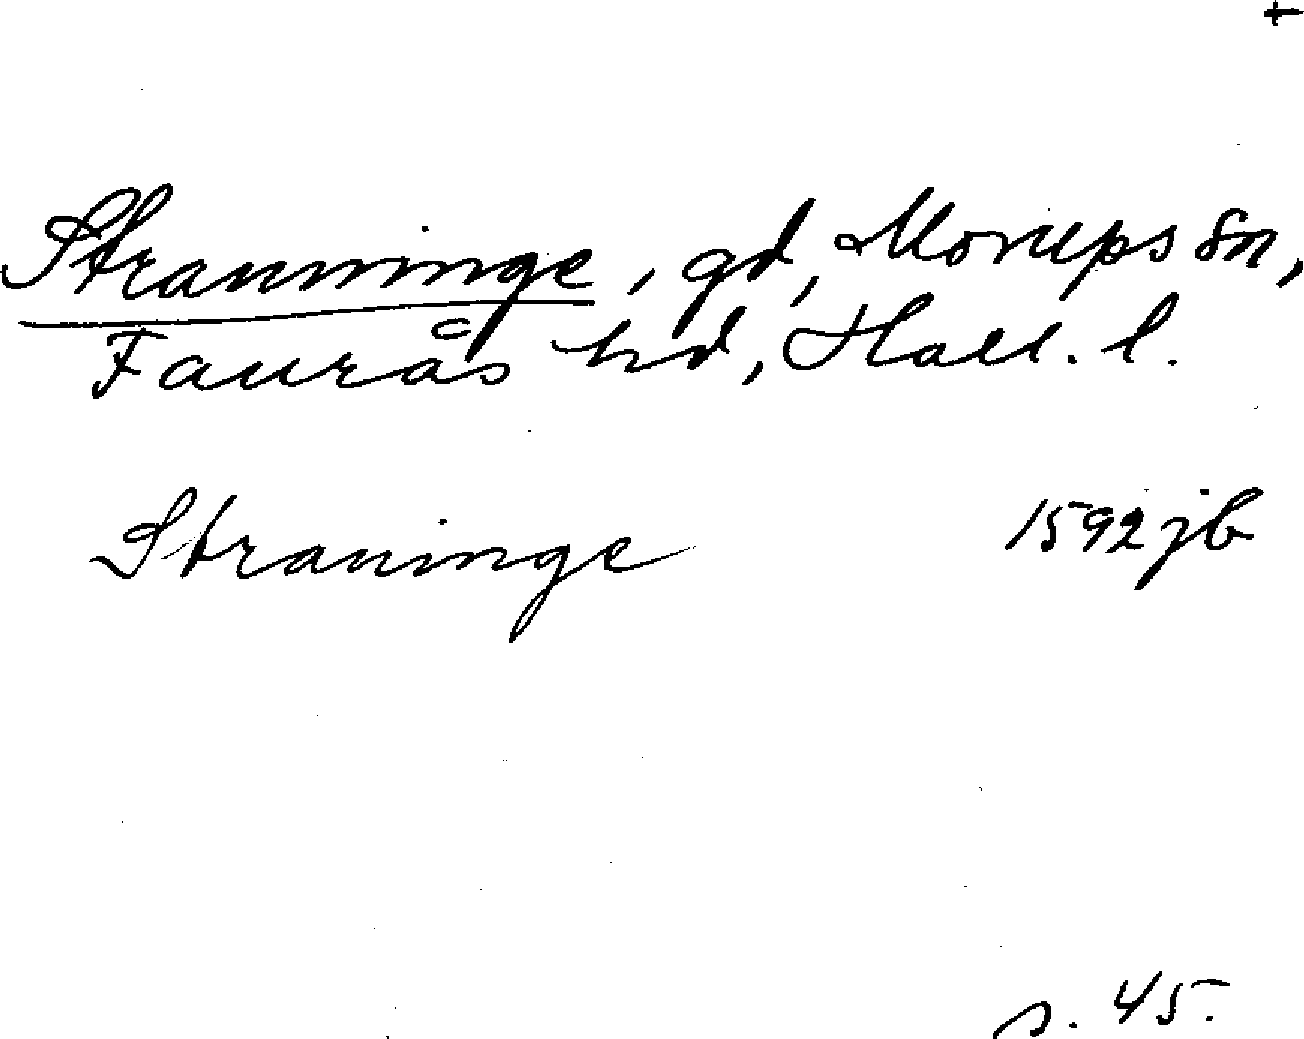 +
Stranninge, gd, Morups sn,
Faurås hd, Hall. l.
Straninge 1592 jb
s. 45.